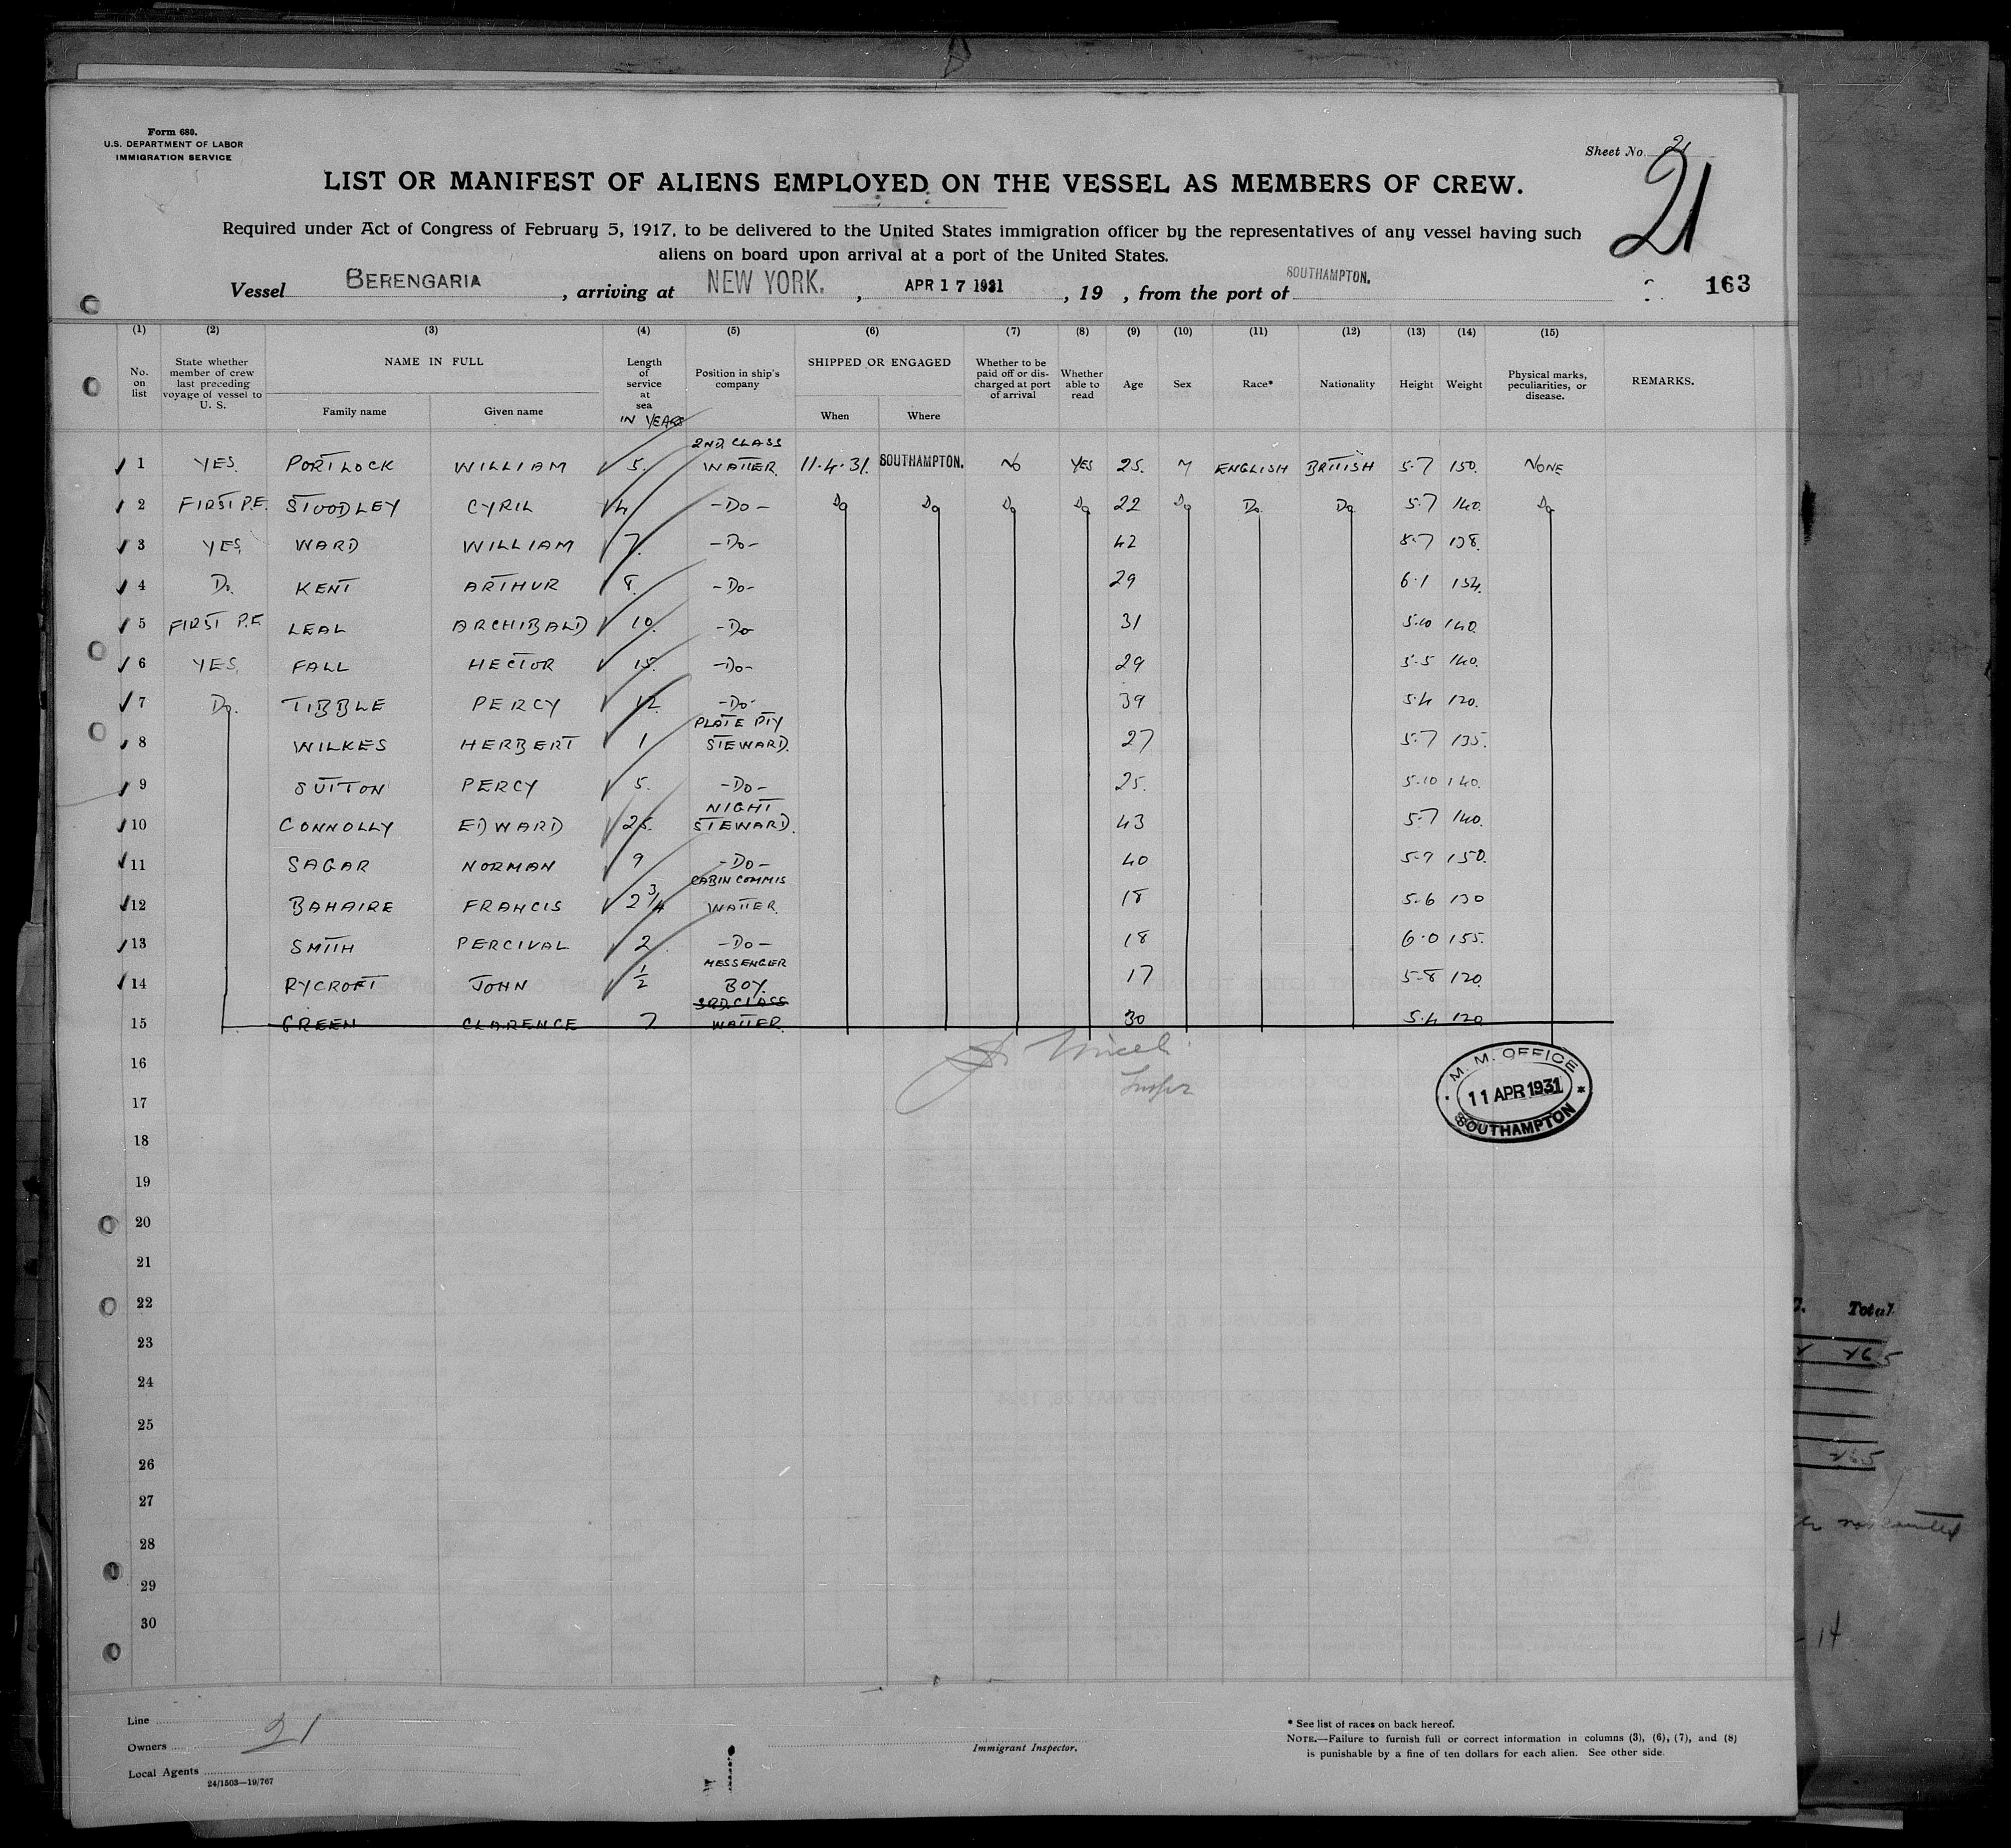 Form 680.
U.S. DEPARTMENT OF LABOR
IMMIGRATION SERVICE
Sheet No. 21
21
LIST OR MANIFEST OF ALIENS EMPLOYED ON THE VESSEL AS MEMBERS OF CREW.
Required under Act of Congress of February 5, 1917, to be delivered to the United States immigration officer by the representatives of any vessel having such
aliens on board upon arrival at a port of the United States.
Vessel BERENGARIA, arriving at NEW YORK., APR 17 1931, 19 , from the port of SOUTHAMPTON.
163
(1) (2) (3) (4) (5) (6) (7) (8) (9) (10) (11) (12) (13) (14) (15)
No. on list State whether member of crew last preceding voyage of vessel to U. S. NAME IN FULL Family name Given name Length of service at sea IN YEARS Position in ship's company SHIPPED OR ENGAGED When Where Whether to be paid off or discharged at port of arrival Whether able to read Age Sex Race* Nationality Height Weight Physical marks, peculiarities, or disease. REMARKS.
1 YES. PORTLOCK WILLIAM 5. 2ND CLASS WAITER. 11.4.31. SOUTHAMPTON. NO YES 25. M ENGLISH BRITISH 5.7 150. NONE
2 FIRST P.E. STOODLEY CYRIL 4 -DO- Do Do Do Do 22 Do Do Do 5.7 140. Do
3 YES. WARD WILLIAM 7. -DO- 42 5.7 138.
4 Do. KENT ARTHUR 8. -DO- 29 6.1 154.
5 FIRST P.E. LEAL ARCHIBALD 10. -DO 31 5.10 140.
6 YES. FALL HECTOR 15. -DO- 29 5.5 140.
7 Do. TIBBLE PERCY 12. -DO- 39 5.4 120.
8 WILKES HERBERT 1 PLATE PTY STEWARD. 27 5.7 135.
9 SUTTON PERCY 5. -DO- 25. 5.10 140.
10 CONNOLLY EDWARD 25. NIGHT STEWARD. 43 5.7 140.
11 SAGAR NORMAN 9 -DO- 40 5.9 150.
12 BAHAIRE FRANCIS 2 3/4 CABIN COMMIS WAITER. 18 5.6 130
13 SMITH PERCIVAL 2 -DO- 18 6.0 155.
14 RYCROFT JOHN 1/2 MESSENGER BOY. 17 5-8 120.
15 GREEN CLARENCE 7 3RD CLASS WAITER. 30 5.4 120
16
17
18
19
20
21
22
23
24
25
26
27
28
29
30
M. M. OFFICE
11 APR 1931
SOUTHAMPTON
Line
Owners
Local Agents
21
24/1503—19/767
Immigrant Inspector.
* See list of races on back hereof.
NOTE.—Failure to furnish full or correct information in columns (3), (6), (7), and (8)
is punishable by a fine of ten dollars for each alien. See other side.
Total